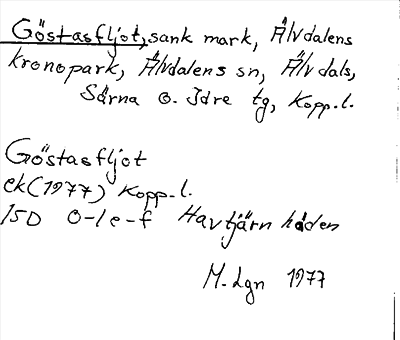 Göstasfljot, sank mark, Älvdalens
kronopark, Älvdalens sn, Älvdals,
Särna o. Idre tg, Kopp.l.
Göstasfljot
ek (1977) Kopp.l.
15D 0-1 e-f Havtjärnhåden
M. Lgn 1977